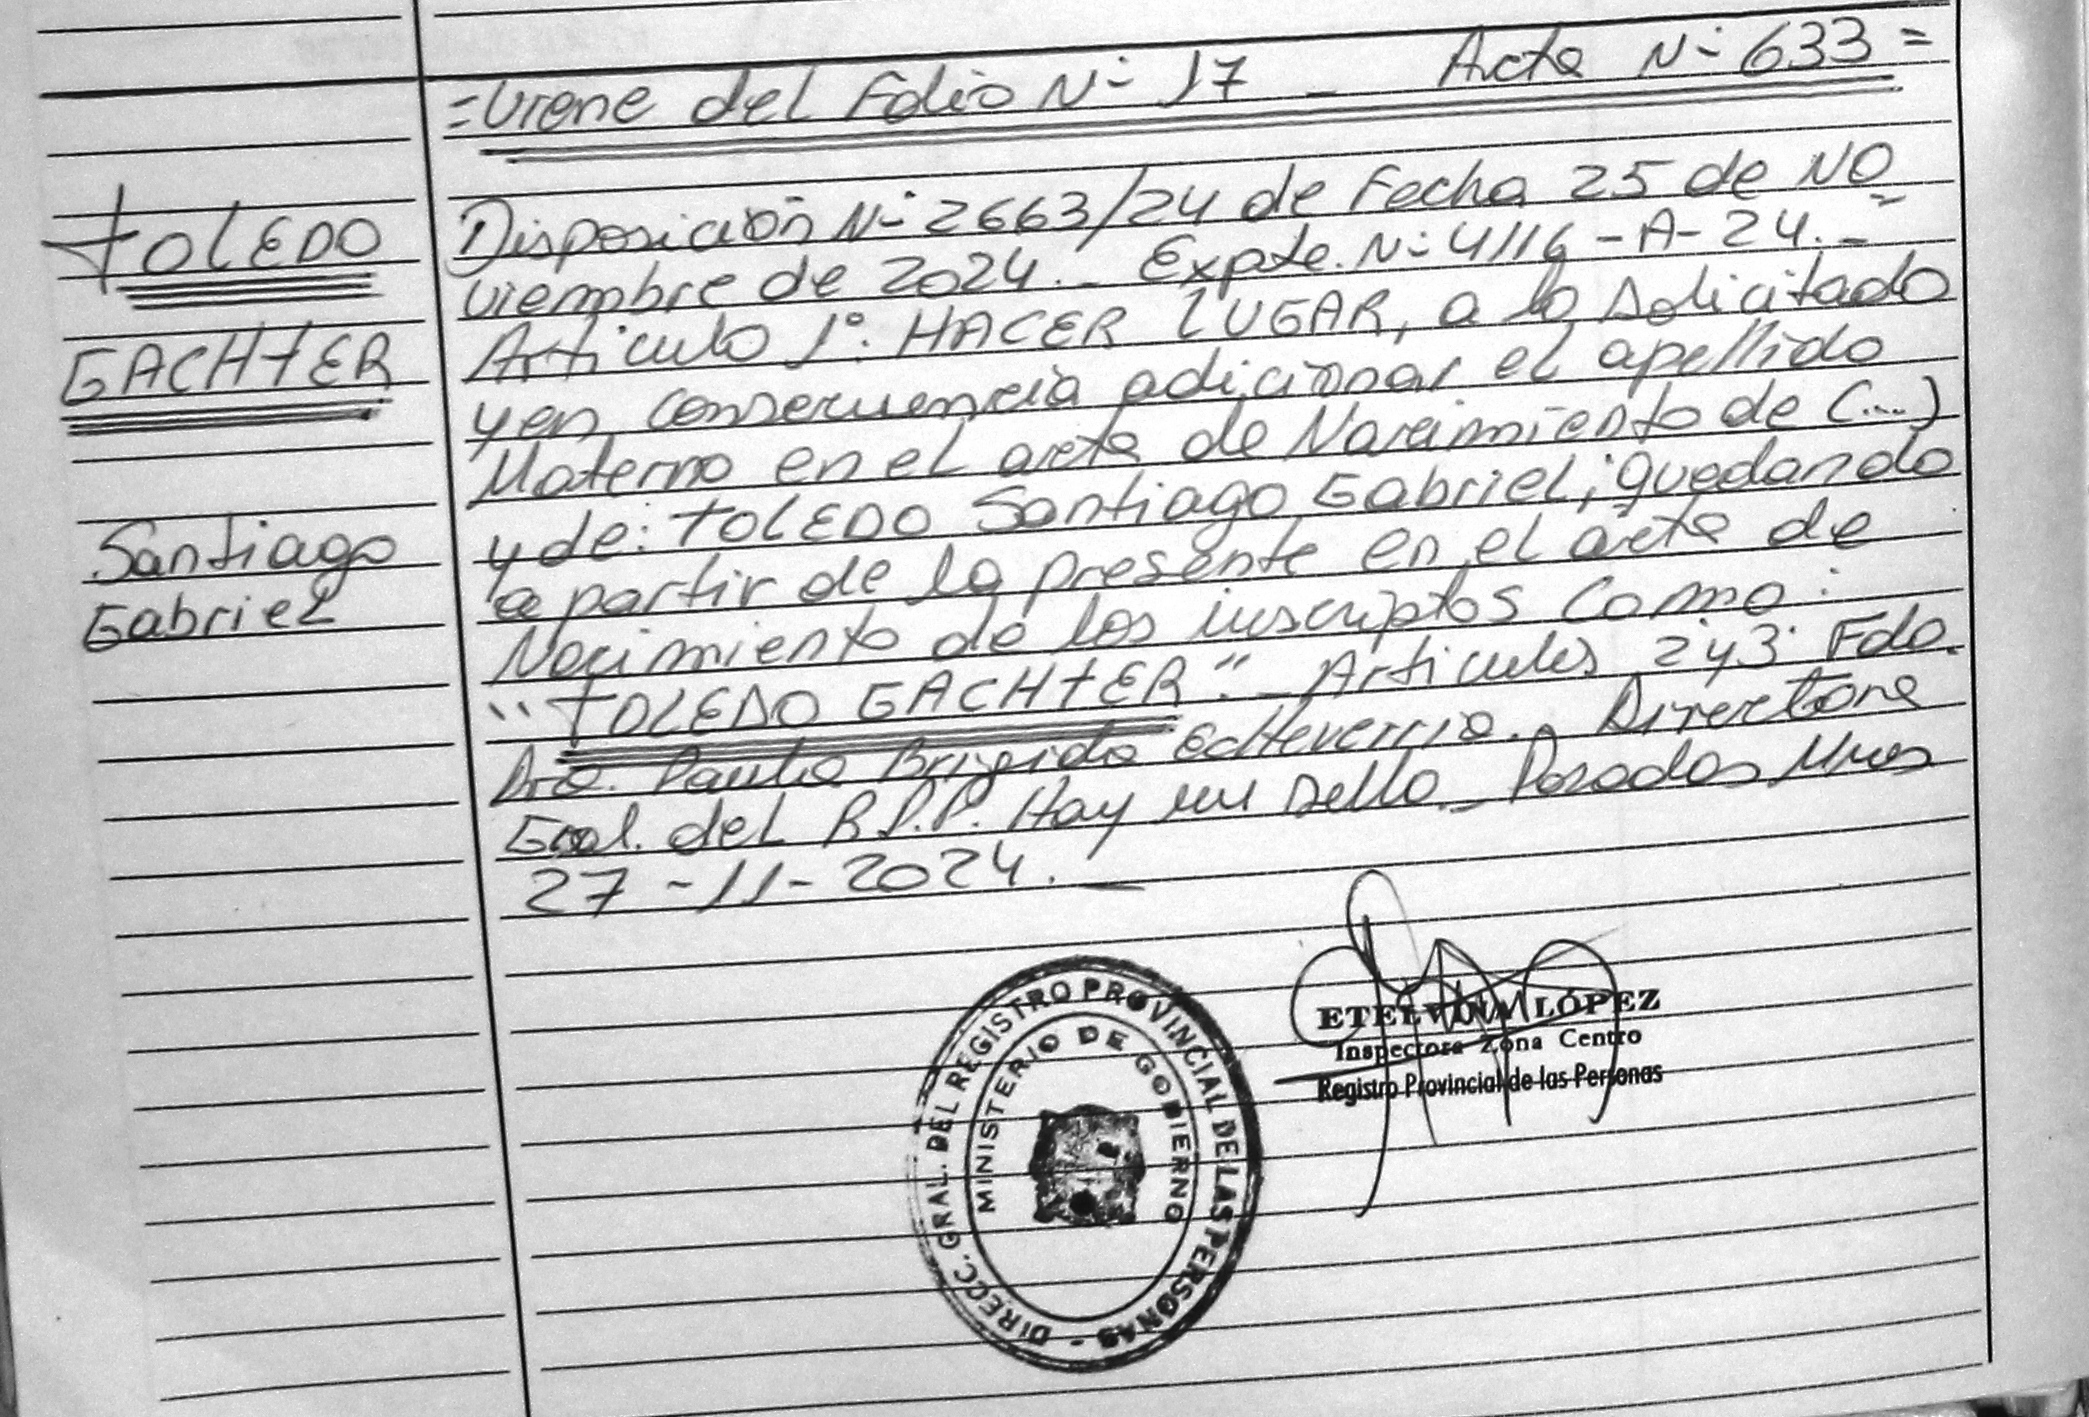 = Viene del Folio N- 17 _ Acta N- 633 =
TOLEDO
GACHTER
Santiago
Gabriel
Disposición N- 2663/24 de Fecha 25 de NO
viembre de 2024._ Expte. N- 4116 - A - 24. _ =
Articulo 1°: HACER LUGAR, a lo solicitado
y en consecuencia adicionar el apellido
Materno en el acta de Nacimiento de (...)
y de: TOLEDO Santiago Gabriel; quedando
a partir de la presente en el acta de
Nacimiento de los inscriptos como:
"TOLEDO GACHTER"._ Articulos 2° y 3° Fdo.
Dra. Paula Brigida Echeverria. Directora
Gral. del R.P.P. Hay un sello._ Posadas Mnes
27 - 11 - 2024. _
DIRECC. GRAL. DEL REGISTRO PROVINCIAL DE LAS PERSONAS -
MINISTERIO DE GOBIERNO
ETELVINA LÓPEZ
Inspectora Zona Centro
Registro Provincial de las Personas